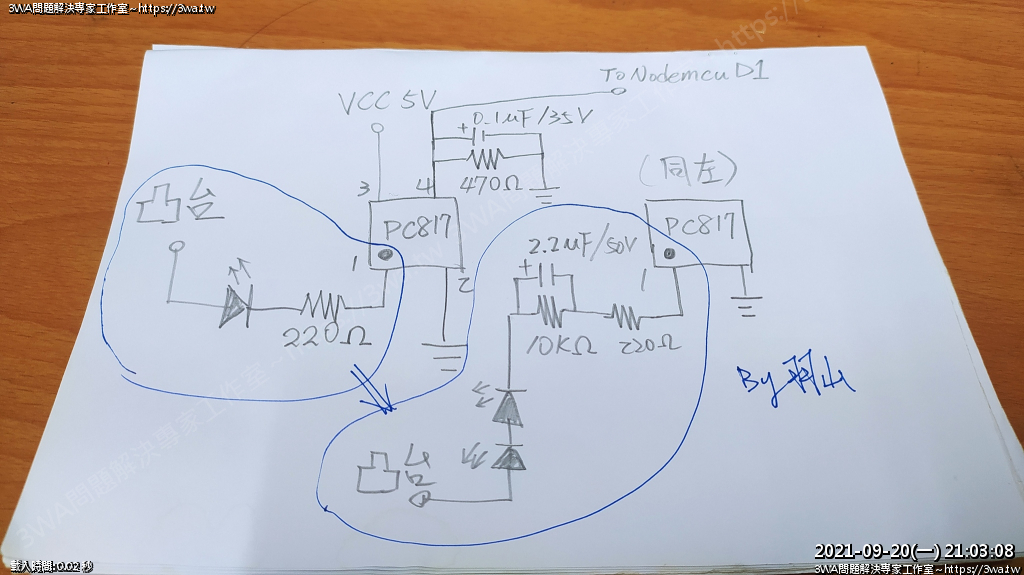 3WA問題解決專家工作室~https://3wa.tw
To Nodemcu D1
VCC 5V
+ 0.1uF/35V
3
4
470Ω
(同左)
凸台
PC817
PC817
1
2
2.2uF/50V
+
1
220Ω
10KΩ
220Ω
By 羽山
凸台
2021-09-20(一) 21:03:08
載入時間:0.02 秒
3WA問題解決專家工作室~https://3wa.tw